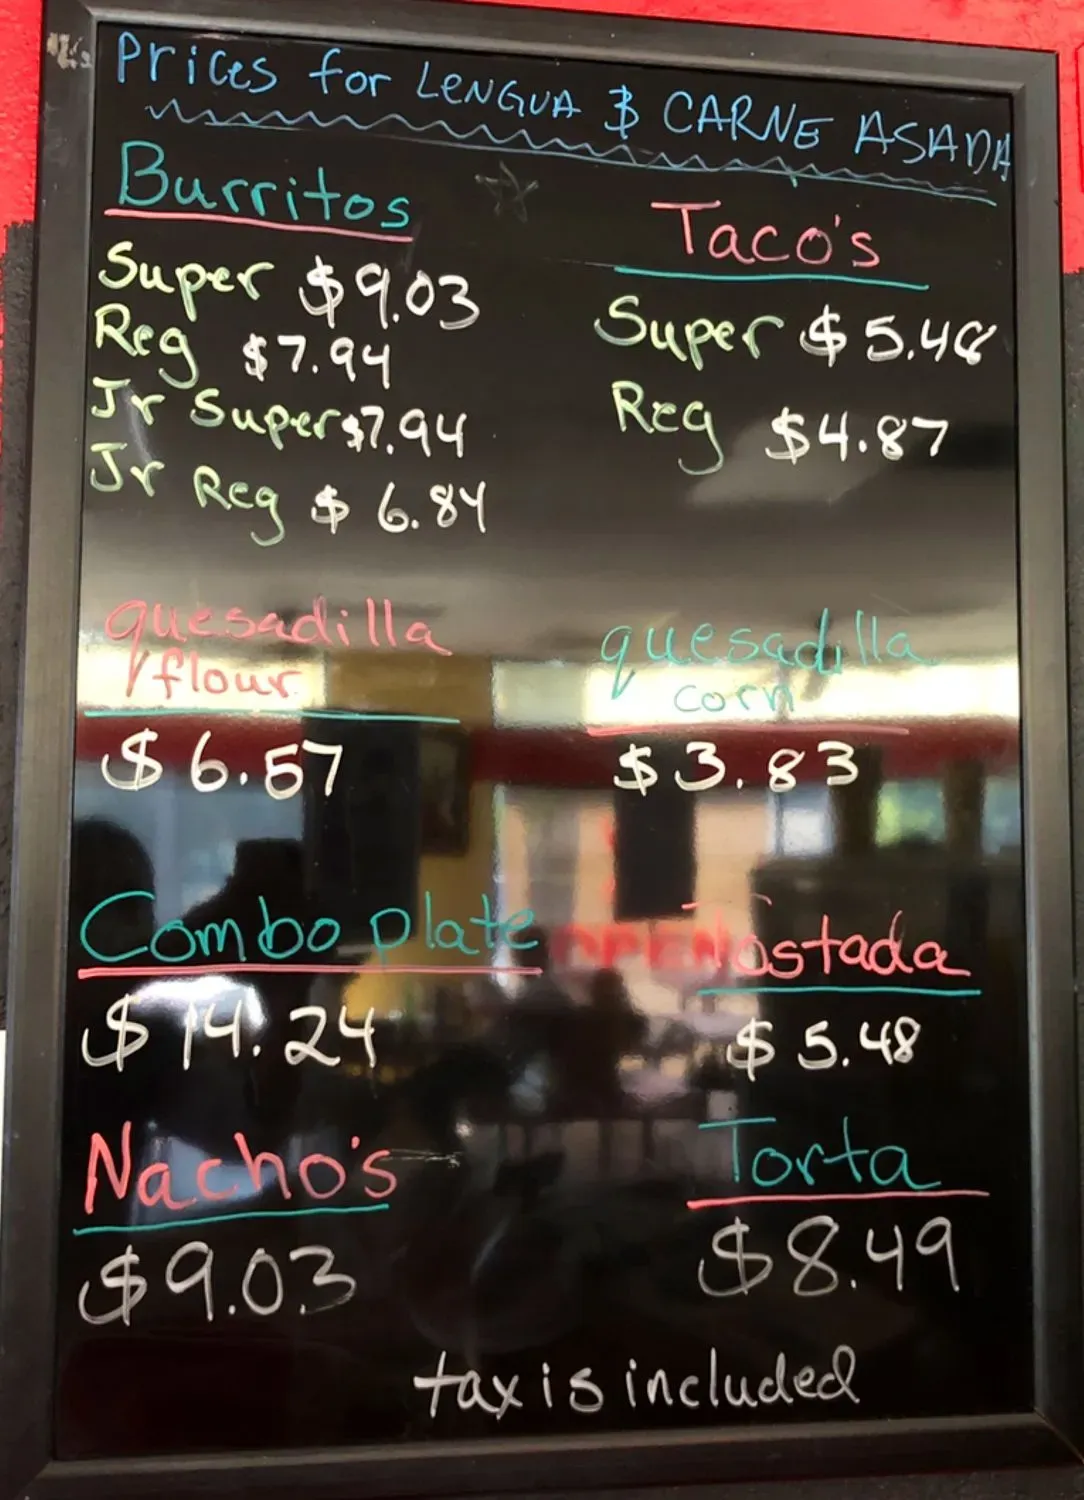 Prices for LENGUA & CARNE ASADA
Burritos
Super $9.03
Reg $7.94
Jr Super $7.94
Jr Reg $6.84
Taco's
Super $5.48
Reg $4.87
quesadilla
flour
$6.57
quesadilla
corn
$3.83
Combo plate
$14.24
OPEN
Tostada
$5.48
Nacho's
$9.03
Torta
$8.49
tax is included